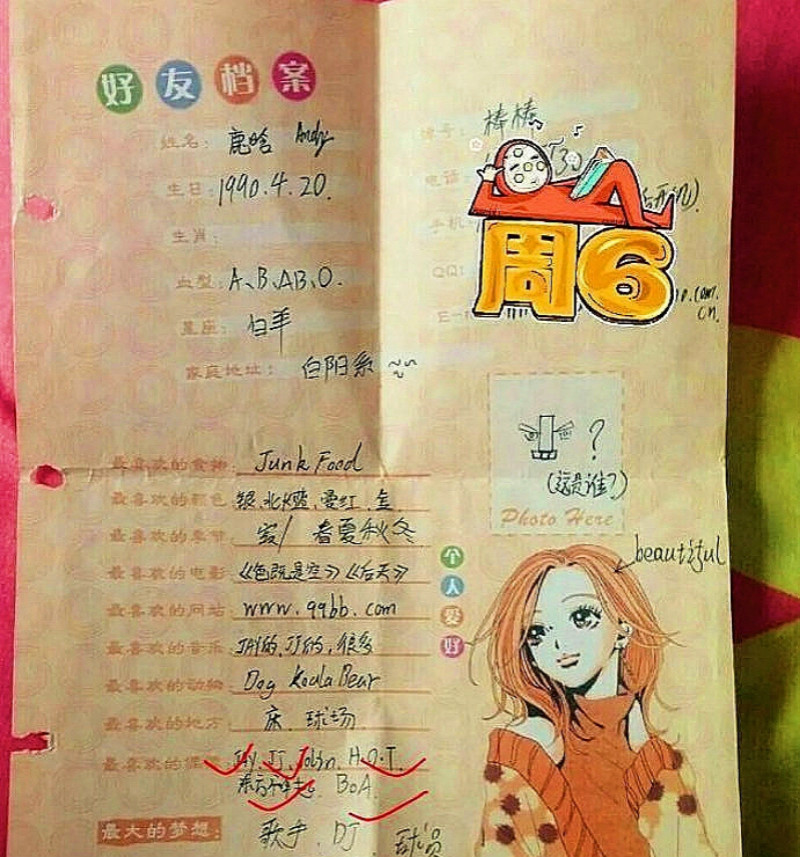 好友档案
姓名: 鹿晗 Andy
生日: 1990.4.20.
生肖:
血型: A、B、AB、O.
星座: 白羊
家庭地址: 白阳系
棒棒
电话:
手机:
QQ:
周6
.com.
cn.
?
(这是谁?)
Photo Here
beautiful
最喜欢的食物: Junk Food
最喜欢的颜色: 银、北大蓝、爱红、金
最喜欢的季节: 春夏秋冬
最喜欢的电影: 《色既是空》《后天》
最喜欢的网站: www.99bb.com
最喜欢的音乐: JAY的、JJ的、很多
最喜欢的动物: Dog Koala Bear
最喜欢的地方: 床、球场
最喜欢的偶像: JAY、JJ、Jolin、H.O.T.
东方神起、BoA.
最大的梦想: 歌手、DJ、球员
个人爱好